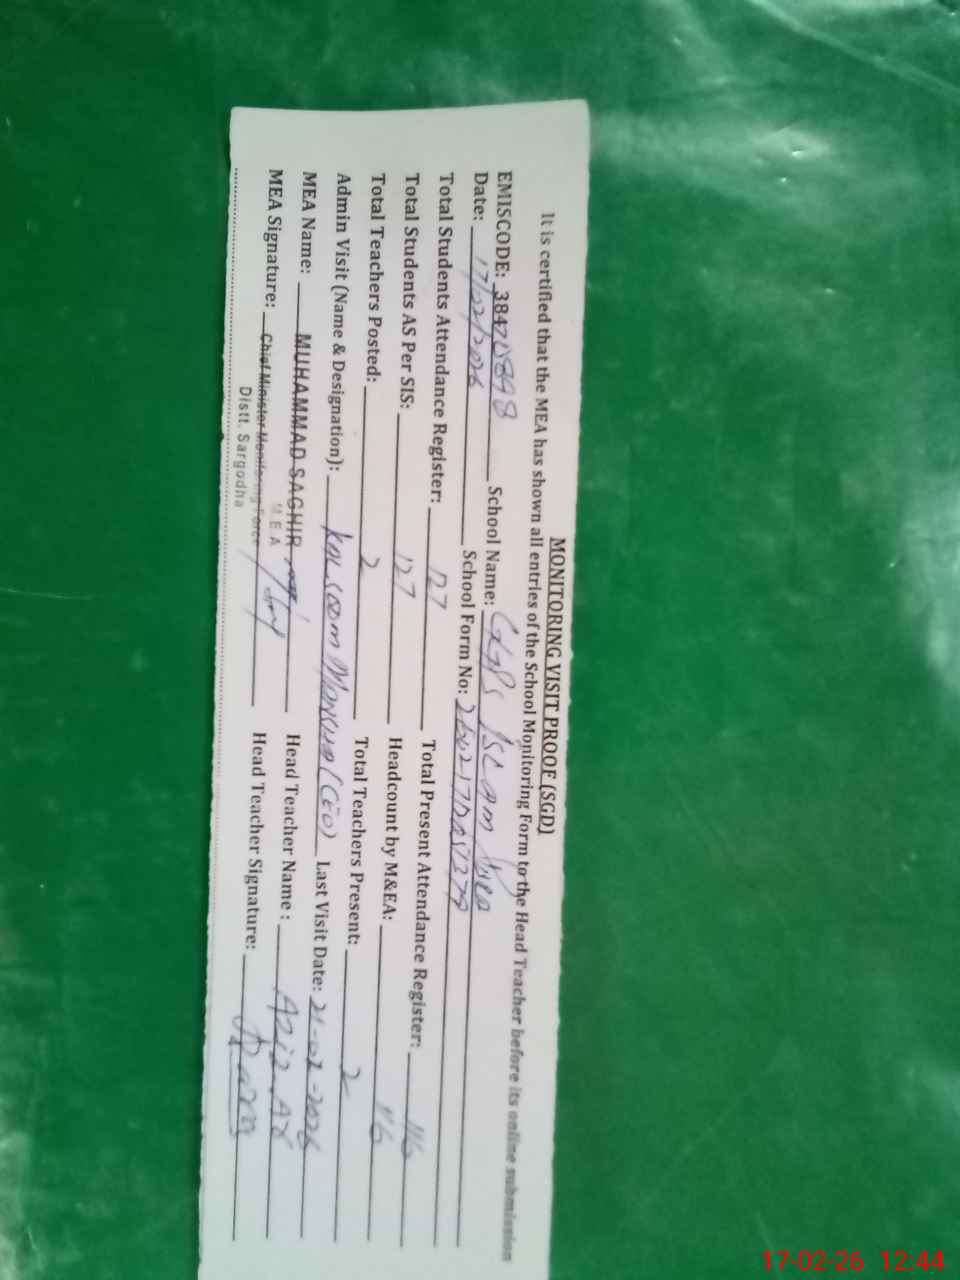 MONITORING VISIT PROOF (SGD)
It is certified that the MEA has shown all entries of the School Monitoring Form to the Head Teacher before its online submission
EMISCODE: School Name: GGPS ISLAM
Date: 17/02/2026 School Form No:
Total Students Attendance Register: 127 Total Present Attendance Register: 116
Total Students AS Per SIS: 127 Headcount by M&EA: 116
Total Teachers Posted: 2 Total Teachers Present: 2
Admin Visit (Name & Designation): (CEO) Last Visit Date:
MEA Name: MUHAMMAD SAGHIR Head Teacher Name :
MEA
MEA Signature: Chief Minister Monitoring Force Head Teacher Signature:
Distt. Sargodha
17-02-26 12:44